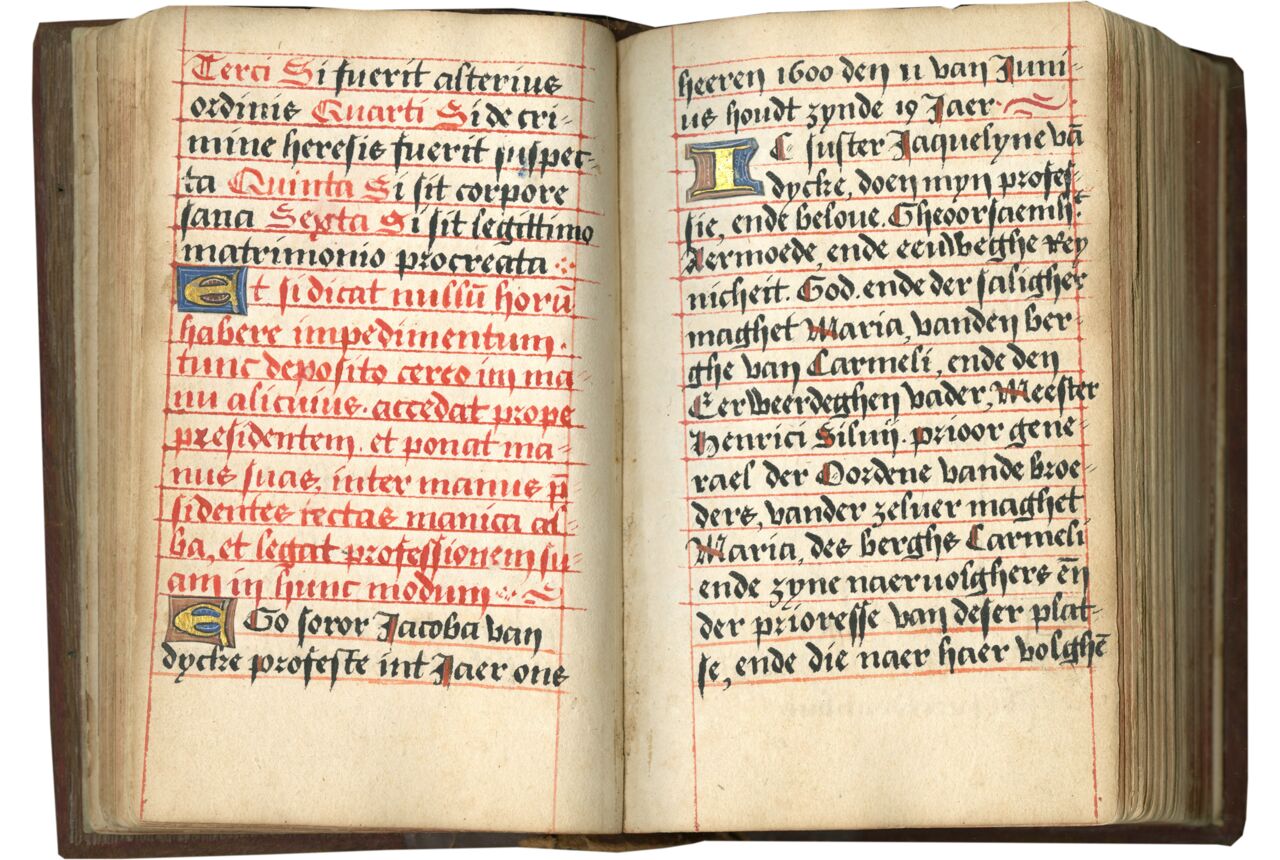 Terci Si fuerit alterius
ordinis Quarti Si de cri-
mine heresis fuerit suspec-
ta Quinta Si sit corpore
sana Sexta Si sit legittimo
matrimonio procreata
Et si dicat nullū horū
habere impedimentum.
tunc deposito cereo in ma-
nu alicuius. accedat prope
presidentem. et ponat ma-
nus suas, inter manus p̄-
sidentes tectas manica al-
ba, et legat professionem su-
am in hunc modum
EGo soror Jacoba van
dycke professe int Jaer ons
heeren 1600 den 11 van Juni-
us houdt zynde 19 Jaer
IC suster Jaquelyne vā
dycke, doen myn profes-
sie, ende beloue. Gheoorsaemh.t
Aermoede, ende eeuweghe Rey
nicheit. God. ende der saligher
maghet Maria, vanden ber-
ghe van Carmeli, ende den
Eerweerdeghen vader, Meester
Henrici Siluij. prioor gene-
rael der Oordene vande broe-
ders, vander zeluer maghet
Maria, des berghs Carmeli
ende zyne naeruolghers eñ
der prioresse van deser plat-
se, ende die naer haer volghē